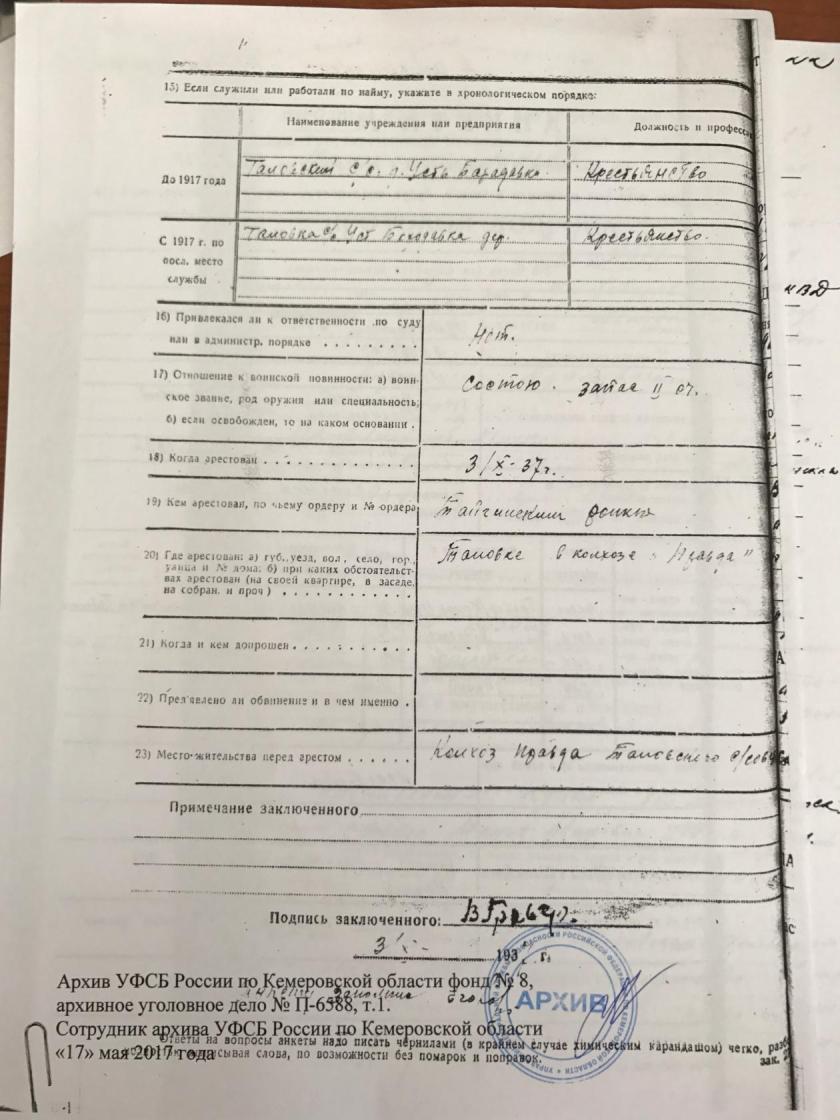 15) Если служили или работали по найму, укажите в хронологическом порядке:
Наименование учреждения или предприятия
Должность и професс
До 1917 года
Таловский с/с. д. Усть
Крестьянство
С 1917 г. по
посл. место
службы
Таловка с/с Уст дер.
Крестьянство.
16) Привлекался ли к ответственности по суду
или в администр. порядке
Нет.
17) Отношение к воинской повинности: а) воин-
ское звание, род оружия или специальность;
б) если освобожден, то на каком основании
Состою. запас II оч.
18) Когда арестован
3/X-37г.
19) Кем арестован, по чьему ордеру и № ордера
Тайгинским
20) Где арестован: а) губ., уезд, вол., село, гор.,
улица и № дома; б) при каких обстоятельст-
вах арестован (на своей квартире, в засаде,
на собран. и проч)
Таловке в колхозе „Правда"
21) Когда и кем допрошен
22) Пред'явлено ли обвинение и в чем именно
23) Место-жительства перед арестом
Колхоз Правда Таловского
Примечание заключенного
Подпись заключенного:
3 X 193 г.
Архив УФСБ России по Кемеровской области фонд № 8,
архивное уголовное дело № П-6588, т.1.
Сотрудник архива УФСБ России по Кемеровской области
АРХИВ
«17» мая 2017 года
Ответы на вопросы анкеты надо писать чернилами (в крайнем случае химическим карандашом) четко,
сывая слова, по возможности без помарок и поправок.
зак.